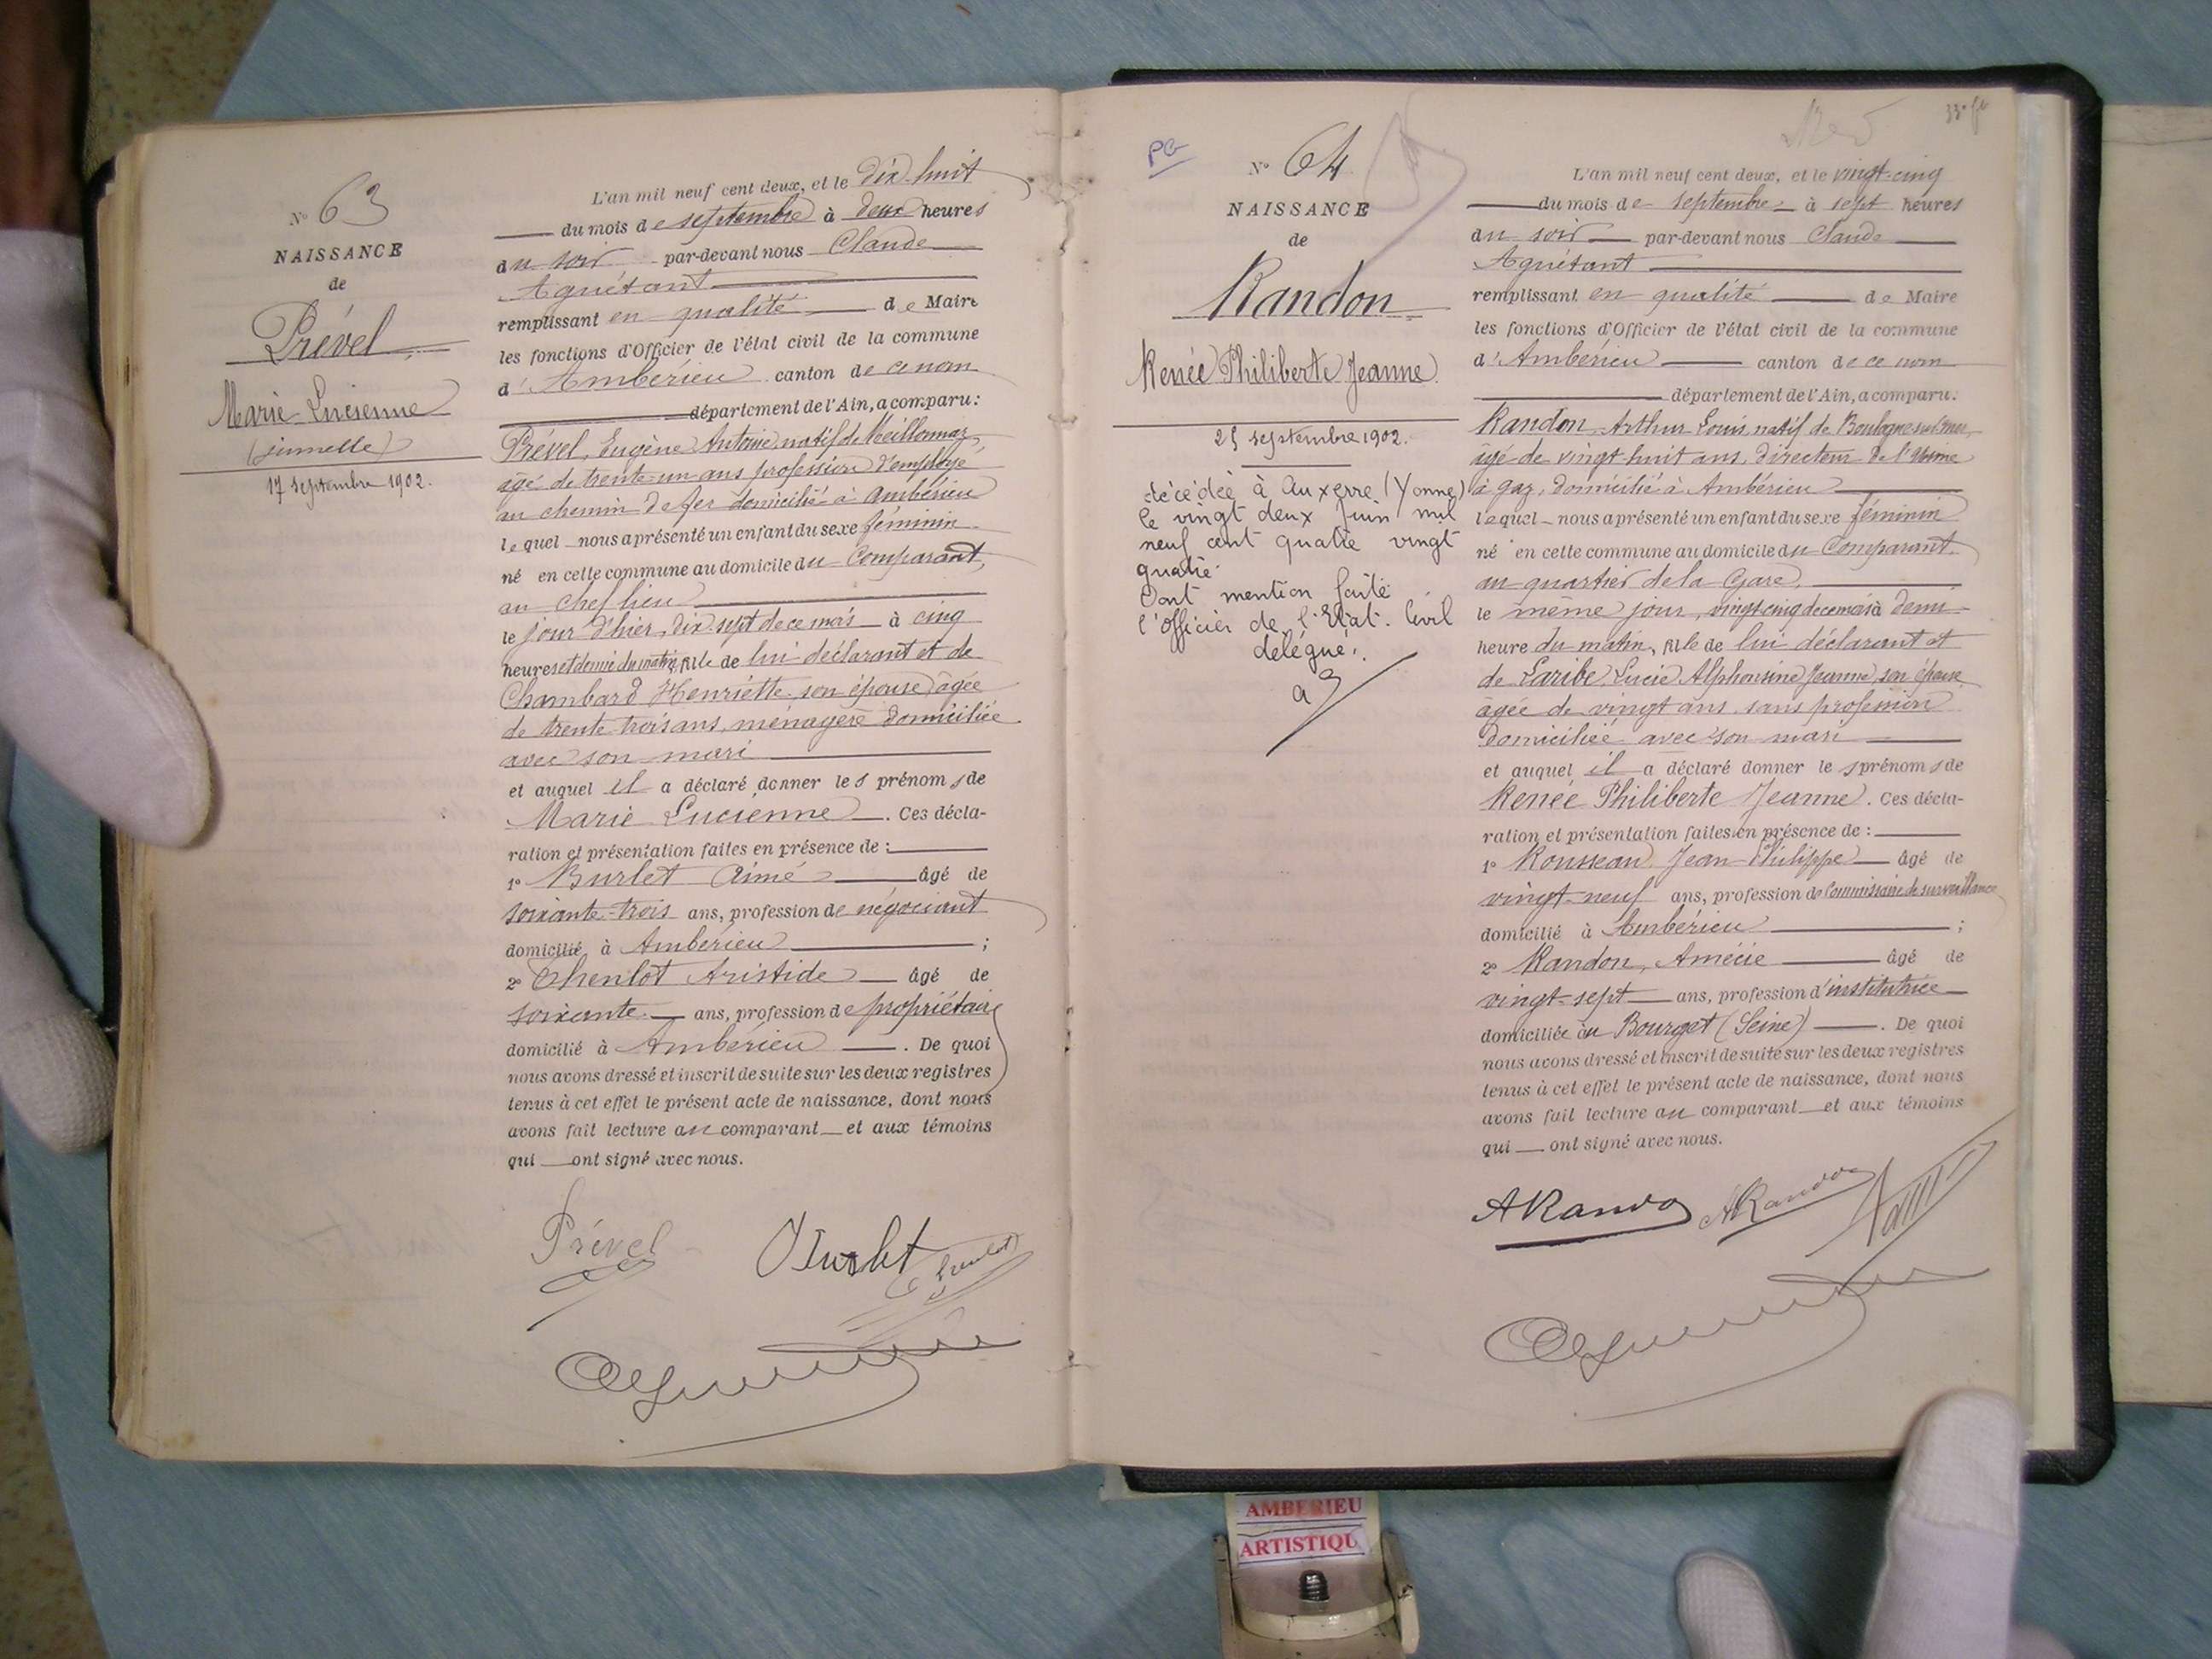 N° 63
NAISSANCE
de
Prével
Marie Lucienne
(jumelle)
17 septembre 1902.
L'an mil neuf cent deux, et le dix-huit
du mois de septembre à deux heures
du soir par-devant nous Claude
Aguétant
remplissant en qualité de Maire
les fonctions d'Officier de l'état civil de la commune
d'Ambérieu canton de ce nom
département de l'Ain, a comparu:
Prével, Eugène Antoine natif de Meillonnaz,
âgé de trente-un ans profession d'employé
au chemin de fer domicilié à Ambérieu
lequel nous a présenté un enfant du sexe féminin
né en cette commune au domicile du Comparant,
au chef lieu
le jour d'hier, dix-sept de ce mois à cinq
heures et demie du matin, fille de lui déclarant et de
Chambard Henriette son épouse âgée
de trente trois ans, ménagère domiciliée
avec son mari
et auquel il a déclaré donner les prénoms de
Marie Lucienne. Ces décla-
ration et présentation faites en présence de :
1° Burlet Aimé âgé de
soixante-trois ans, profession de négociant
domicilié à Ambérieu ;
2° Chenlot Aristide âgé de
soixante ans, profession de propriétaire
domicilié à Ambérieu. De quoi
nous avons dressé et inscrit de suite sur les deux registres
tenus à cet effet le présent acte de naissance, dont nous
avons fait lecture au comparant et aux témoins
qui ont signé avec nous.
Prével
PG
N° 64
NAISSANCE
de
Randon
Renée Philiberte Jeanne
25 septembre 1902.
décédée à Auxerre (Yonne)
le vingt deux Juin mil
neuf cent quatre vingt
quatre.
Dont mention faite
l'officier de l'Etat. Civil
délégué.
33e ft
L'an mil neuf cent deux, et le vingt-cinq
du mois de septembre à sept heures
du soir par-devant nous Claude
Aguétant
remplissant en qualité de Maire
les fonctions d'Officier de l'état civil de la commune
d'Ambérieu canton de ce nom
département de l'Ain, a comparu:
Randon, Arthur Louis, natif de Boulogne sur Mer,
âgé de vingt-huit ans, directeur de l'Usine
à gaz, domicilié à Ambérieu
lequel nous a présenté un enfant du sexe féminin
né en cette commune au domicile du Comparant
au quartier de la Gare,
le même jour, vingt-cinq de ce mois à demi-
heure du matin, fille de lui déclarant et
de Laribe, Lucie Alphonsine Jeanne, son épouse
âgée de vingt ans, sans profession
domiciliée avec son mari
et auquel il a déclaré donner les prénoms de
Renée Philiberte Jeanne. Ces décla-
ration et présentation faites en présence de :
1° Rousseau, Jean-Philippe âgé de
vingt-neuf ans, profession de Commissaire de surveillance
domicilié à Ambérieu ;
2° Randon, Amécie âgé de
vingt-sept ans, profession d'institutrice
domiciliée au Bourget (Seine). De quoi
nous avons dressé et inscrit de suite sur les deux registres
tenus à cet effet le présent acte de naissance, dont nous
avons fait lecture au comparant et aux témoins
qui ont signé avec nous.
ARandon ARandon
AMBERIEU
ARTISTIQU